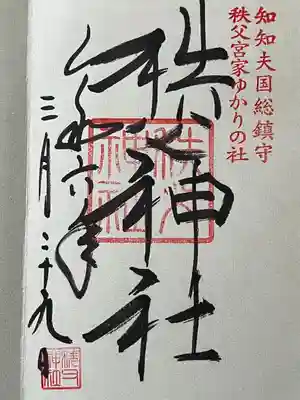 知知夫国総鎮守
秩父宮家ゆかりの社
秩父神社
令和六年
三月二十九日